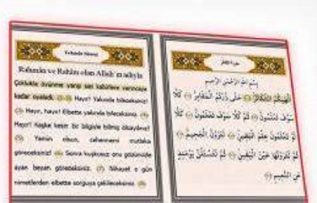 Tekasür Sûresi
Rahman ve Rahîm olan Allah'ın adıyla
Çoklukla övünme yarışı sizi kabirlere varıncaya
kadar oyaladı. Hayır! Yakında bileceksiniz!
Hayır, hayır! Elbette yakında bileceksiniz.
Hayır! Keşke kesin bir bilgiyle bilmiş olsaydınız!
Yemin olsun, cehennemi mutlaka
göreceksiniz! Sonra kuşkusuz onu gözünüzle
ayan beyan göreceksiniz. Nihayet o gün
nimetlerden elbette sorguya çekileceksiniz.
بِسْمِ اللّٰهِ الرَّحْمٰنِ الرَّحِيمِ
اَلْهٰيكُمُ التَّكَاثُرُ حَتّٰى زُرْتُمُ الْمَقَابِرَ كَلَّا
سَوْفَ تَعْلَمُونَ ثُمَّ كَلَّا سَوْفَ تَعْلَمُونَ كَلَّا
لَوْ تَعْلَمُونَ عِلْمَ الْيَقِينِ لَتَرَوُنَّ الْجَحِيمَ
ثُمَّ لَتَرَوُنَّهَا عَيْنَ الْيَقِينِ ثُمَّ لَتُسْـَٔلُنَّ يَوْمَئِذٍ
عَنِ النَّعِيمِ